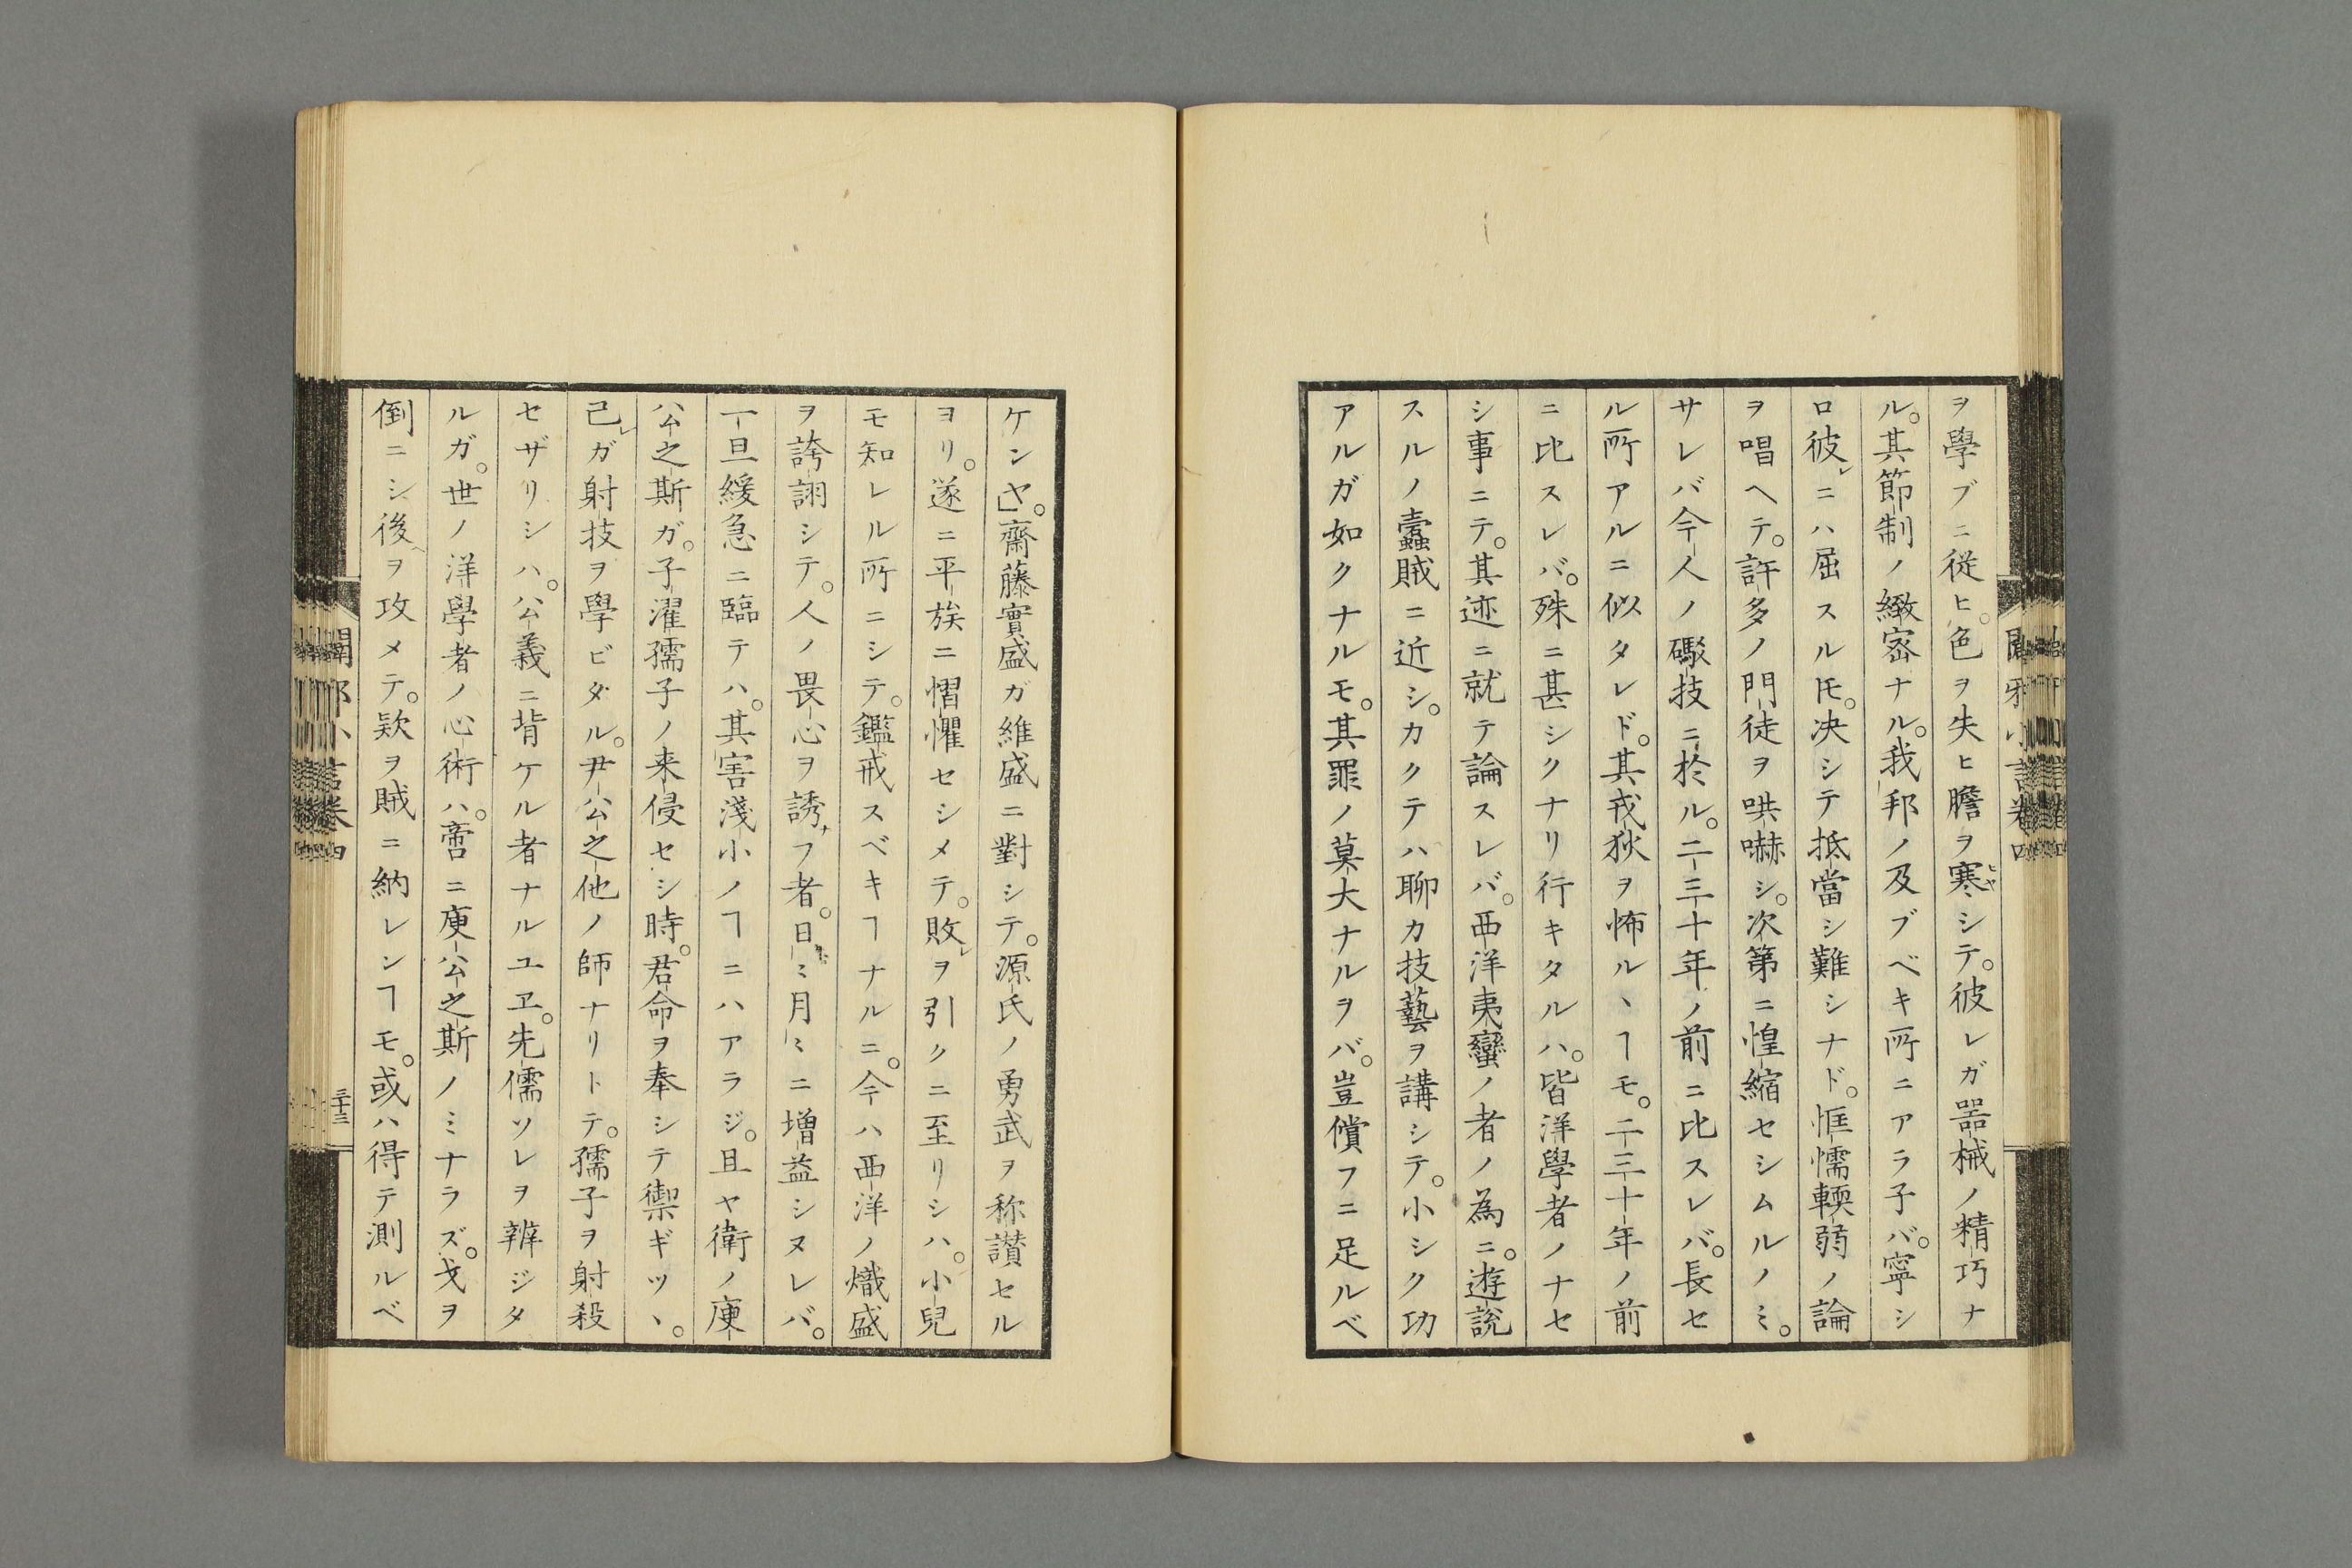 ヲ學ブニ従ヒ。色ヲ失ヒ膽ヲ寒シテ。彼レガ器械ノ精巧ナ
ル。其節制ノ緻宻ナル。我邦ノ及ブベキ所ニアラ子バ。寧シ
ロ彼レニハ屈スルトモ。决シテ抵當シ難シナド。恇懦輭弱ノ論
ヲ唱ヘテ。許多ノ門徒ヲ哄嚇シ。次第ニ惶縮セシムルノミ。
サレバ今人ノ礮技ニ於ル。二三十年ノ前ニ比スレバ。長セ
ル所アルニ似タレド。其戎狄ヲ怖ルヽヿモ。二三十年ノ前
ニ比スレバ。殊ニ甚シクナリ行キタルハ。皆洋學者ノナセ
シ事ニテ。其迹ニ就テ論スレバ。西洋夷蠻ノ者ノ為ニ。遊說
スルノ蠹賊ニ近シ。カクテハ聊カ技藝ヲ講シテ。小シク功
アルガ如クナルモ。其罪ノ莫大ナルヲバ。豈償フニ足ルベ
ケンヤ。齋藤實盛ガ維盛ニ對シテ。源氏ノ勇武ヲ称讃セル
ヨリ。遂ニ平族ニ慴懼セシメテ。敗レヲ引クニ至リシハ。小兒
モ知レル所ニシテ。鑑戒スベキヿナルニ。今ハ西洋ノ熾盛
ヲ誇詡シテ。人ノ畏心ヲ誘フ者。日ミ月ミニ増益シヌレバ。
一旦緩急ニ臨テハ。其害淺小ノヿニハアラジ。且ヤ衛ノ庾
公之斯ガ。子濯孺子ノ来侵セシ時。君命ヲ奉シテ禦ギツヽ。
己レガ射技ヲ學ビタル。尹公之他ノ師ナリトテ。孺子ヲ射殺
セザリシハ。公義ニ背ケル者ナルユヱ。先儒ソレヲ辨ジタ
ルガ。世ノ洋學者ノ心術ハ。啻ニ庾公之斯ノミナラズ。戈ヲ
倒ニシ後ヲ攻メテ。欵ヲ賊ニ納レンヿモ。或ハ得テ測ルベ
闢邪小言卷四
三十三